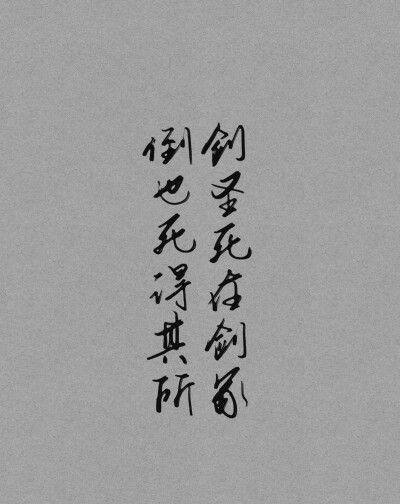 剑圣死在剑冢
倒也死得其所